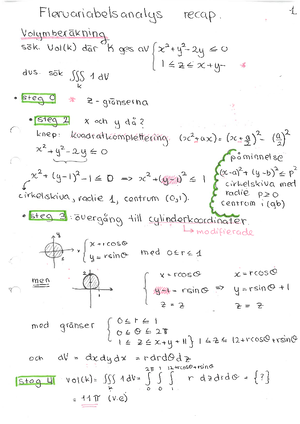 Flervariabelsanalys recap. 1
Volymberäkning
sök. Vol(K) där K ges av { x²+y²-2y ≤ 0
1 ≤ z ≤ x+y-
dvs. sök ∭ 1 dV
K
• steg * z-gränserna
• steg 2 x och y då?
knep: kvadratkomplettering (x²+ax) = (x+a/2)² - (a/2)²
x²+y²-2y ≤ 0
x²+(y-1)²-1 ≤ 0 ⇒ x²+(y-1)² ≤ 1
cirkelskiva, radie 1, centrum (0,1).
påminnelse
(x-a)²+(y-b)² ≤ p²
cirkelskiva med
radie p≥0
centrum i (a,b)
• steg 3: övergång till cylinderkoordinater
→ modifierade
{ x=rcosθ
y=rsinθ med 0≤r≤1
men
{ x=rcosθ x=rcosθ
y-1=rsinθ ⇒ y=rsinθ+1
z=z z=z
med gränser { 0≤r≤1
0≤θ≤2π
1≤z≤x+y+11 } 1≤z≤12+rcosθ+rsinθ
och dV = dxdydz = rdrdθdz
steg 4 vol(K) = ∭ 1 dV = ∫∫∫ r dzdrdθ = {?}
= 11π (v.e)